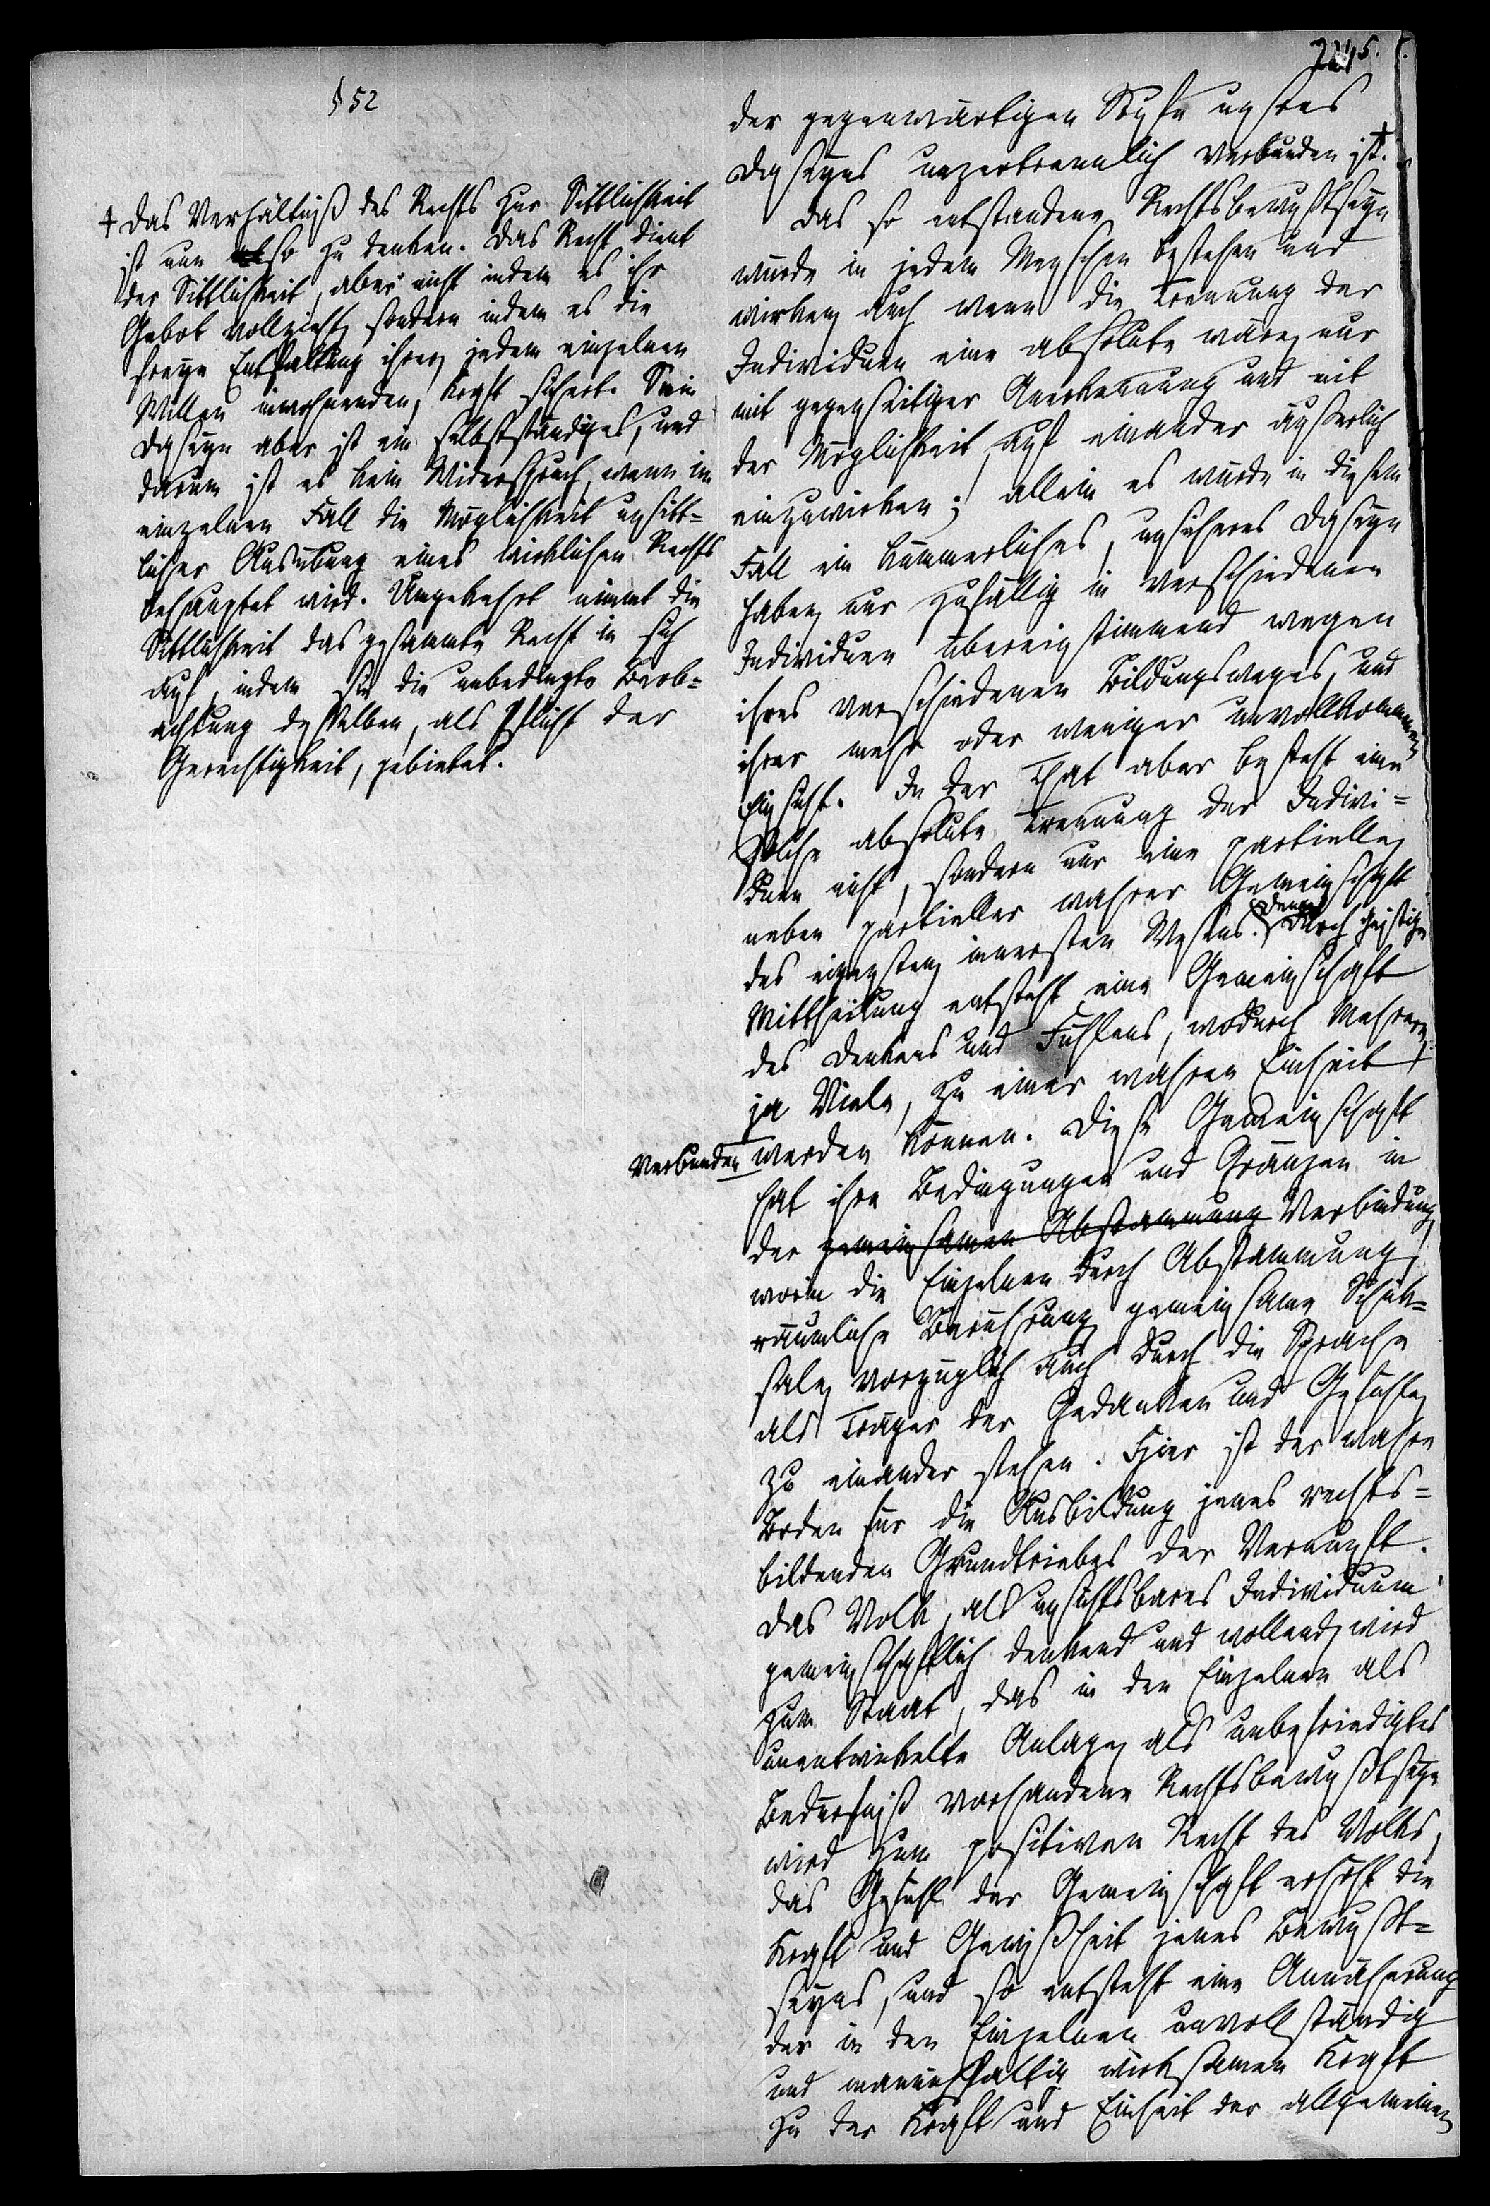 245.
§ 52
+ Das Verhältniß des Rechts zur Sittlichkeit
ist nun so zu denken. Das Recht dient
der Sittlichkeit, aber nicht indem es ihr
Gebot vollzieht, sondern indem es die
freye Entfaltung ihrer, jedem einzelnen
Willen inwohnenden, Kraft sichert. Sein
Daseyn aber ist ein selbstständiges, und
darum ist es kein Widerspruch, wenn im
einzelnen Fall die Möglichkeit unsitt=
licher Ausübung eines wirklichen Rechts
behauptet wird. Umgekehrt nimmt die
Sittlichkeit das gesammte Recht in sich
auf, indem sie die unbedingte Beob=
achtung desselben, als Pflicht der
Gerechtigkeit, gebietet.
der gegenwärtigen Stufe unsres
Daseyns unzertrennlich verbunden ist.+
Das so entstandene Rechtsbewußtseyn
würde in jedem Menschen bestehen und
wirken, auch wenn die Trennung der
Individuen eine absolute wäre, nur
mit gegenseitiger Anerkennung und mit
der Möglichkeit, auf einander äußerlich
einzuwirken; allein es würde in diesem
Fall ein kümmerliches, unsicheres Daseyn
haben, nur zufällig in verschiedenen
Individuen übereinstimmend wegen
ihres verschiedenen Bildungsweges, und
ihrer mehr oder weniger unvollkommnen
Einsicht. In der That aber besteht eine
solche absolute Trennung der Indivi=
duen nicht, sondern nur eine partielle,
neben partieller wahrer Gemeinschaft
des eigensten, innersten Wesens. Denn durch geistige
Mittheilung entsteht eine Gemeinschaft
des Denkens und Fühlens, wodurch Mehrere,
ja Viele, zu einer wahren Einheit
verbunden werden können. Diese Gemeinschaft
hat ihre Bedingungen und Gränzen in
der gemeinsamen Abstammung Verbindung,
worin die Einzelnen durch Abstammung,
räumliche Berührung, gemeinsame Schick=
sale, vorzüglich auch durch die Sprache
als Träger der Gedanken und Gefühle,
zu einander stehen. Hier ist der wahre
Boden für die Ausbildung jenes rechts=
bildenden Grundtriebes der Vernunft.
Das Volk, als unsichtbares Individuum
gemeinschaftlich denkend und wollend, wird
zum Staat, das in den Einzelnen als
unentwickelte Anlage, als unbefriedigtes
Bedürfniß vorhandene Rechtsbewußtseyn
wird zum positiven Recht des Volks,
das Gefühl der Gemeinschaft erhöht die
Kraft und Gewißheit jenes Bewußt=
seyns, und so entsteht eine Annäherung
der in den Einzelnen unvollständig
und mannichfaltig wirksamen Kraft
zu der Kraft und Einheit der allgemeinen